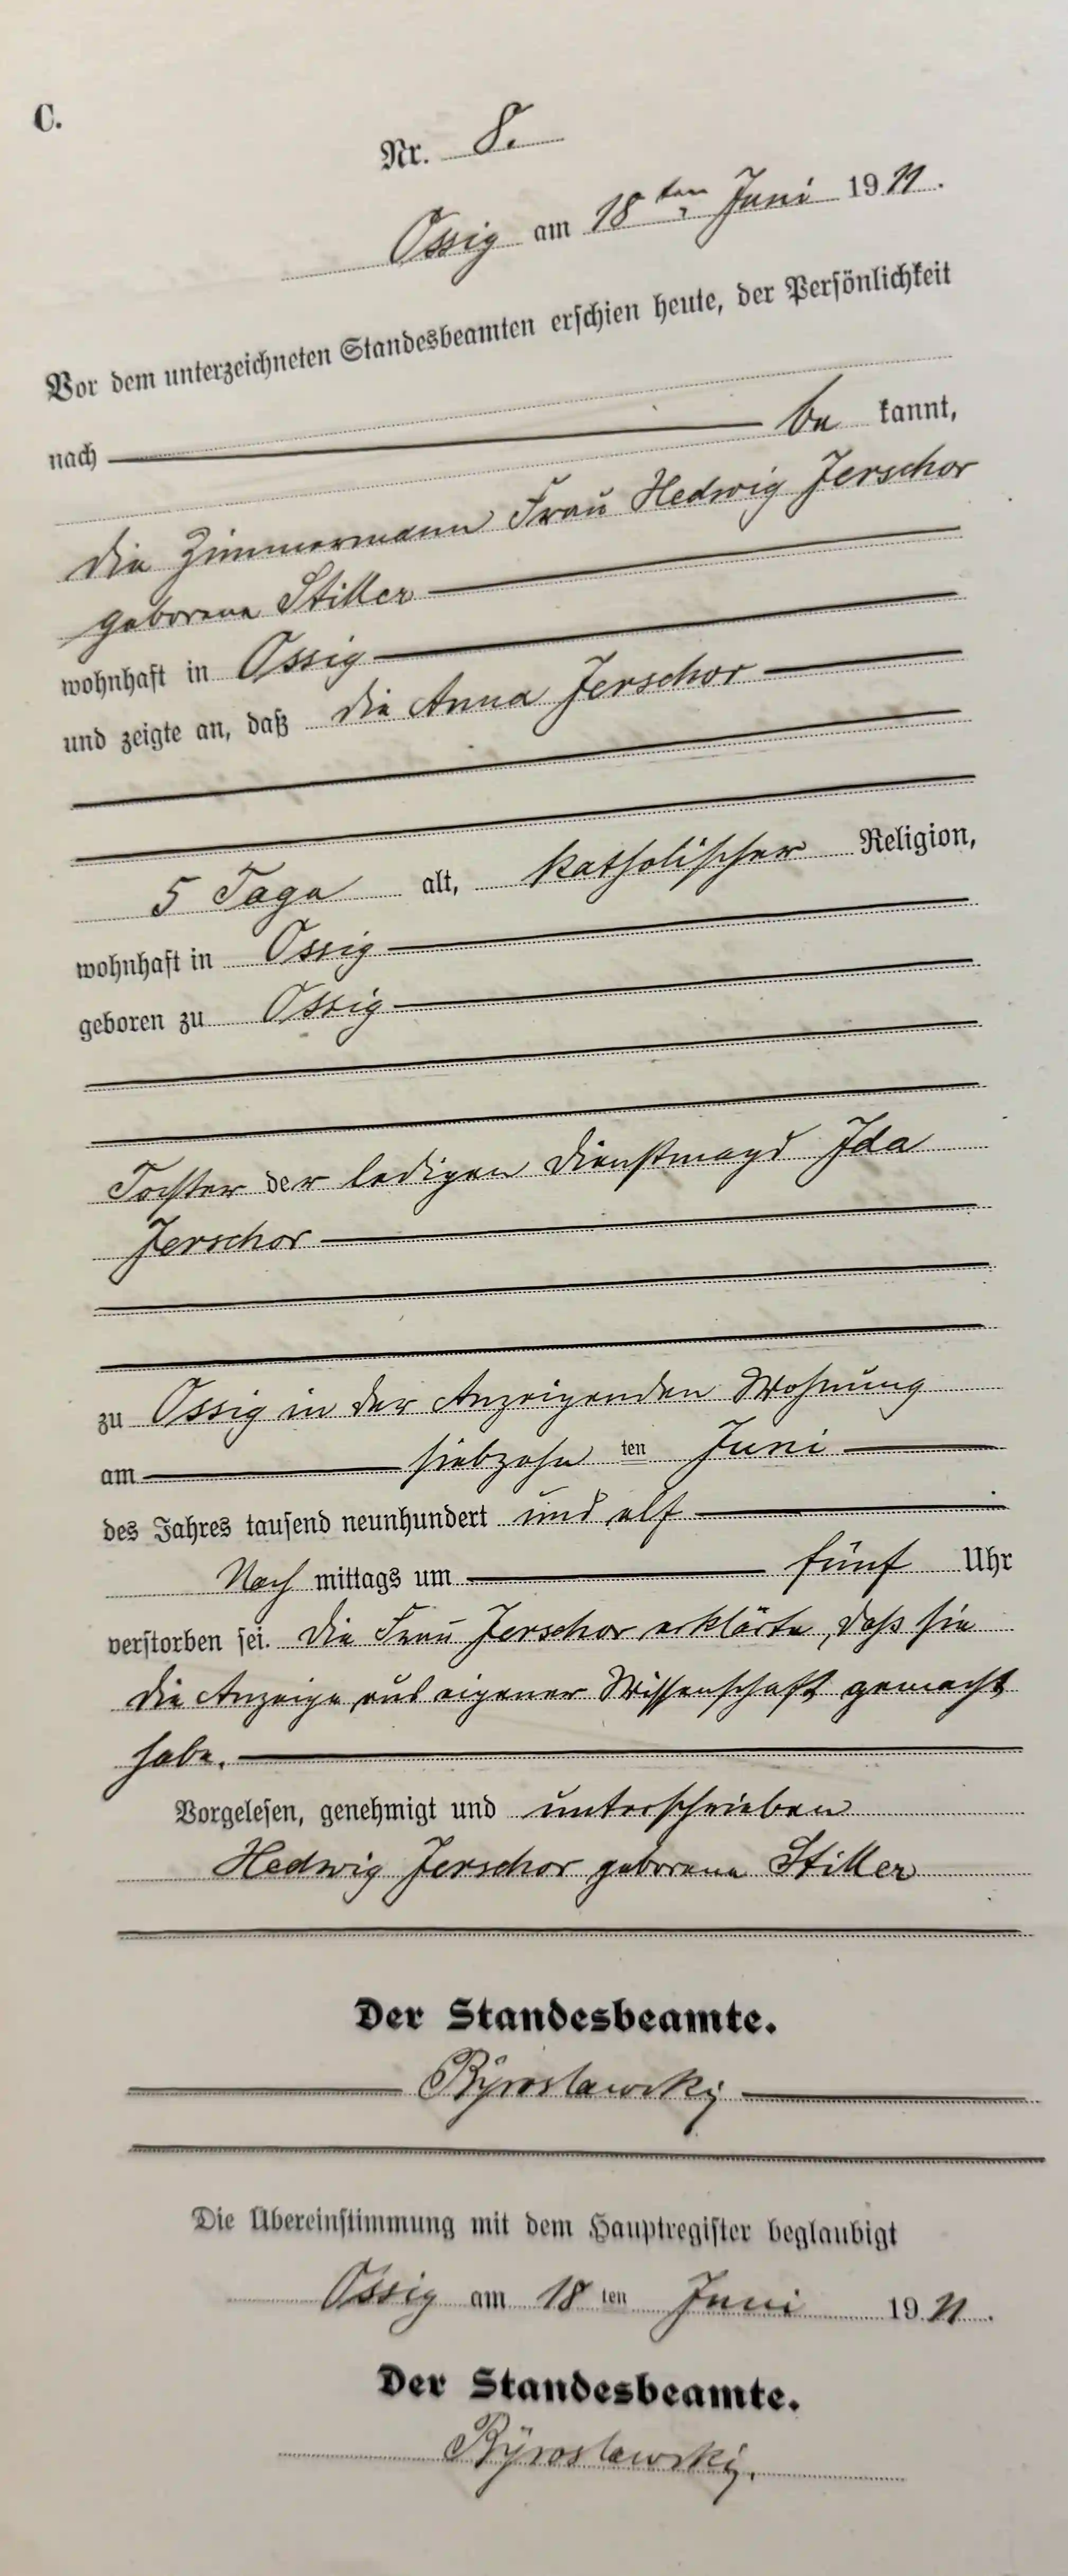 C.
Nr. 8.
Ossig am 18ten Juni 1911.
Vor dem unterzeichneten Standesbeamten erschien heute, der Persönlichkeit
nach be kannt,
die Zimmermann Frau Hedwig Jerschor
geborene Stiller
wohnhaft in Ossig
und zeigte an, daß die Anna Jerschor
5 Tage alt, katholischer Religion,
wohnhaft in Ossig
geboren zu Ossig
Tochter der ledigen Dienstmagd Ida
Jerschor
zu Ossig in der Anzeigenden Wohnung
am siebzehn ten Juni
des Jahres tausend neunhundert und elf
Nach mittags um fünf Uhr
verstorben sei. Die Frau Jerschor erklärte, daß sie
die Anzeige aus eigener Wissenschaft gemacht
habe.
Vorgelesen, genehmigt und unterschrieben
Hedwig Jerschor geborene Stiller
Der Standesbeamte.
Die Übereinstimmung mit dem Hauptregister beglaubigt
Ossig am 18 ten Juni 1911.
Der Standesbeamte.